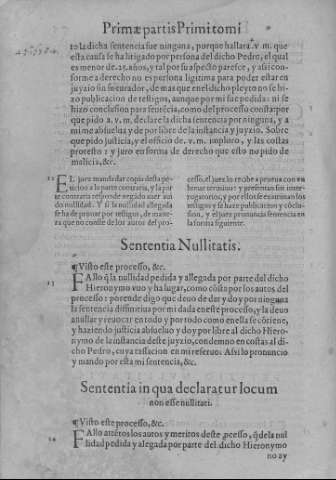 Primæ partis Primi tomi
to la dicha sentencia fue ninguna, porque hallara .v. m. que
esta causa se ha litigado por persona del dicho Pedro, el qual
es menor de .25. años, y tal por su aspecto paresce, y assi con-
forme a derecho no es persona ligitima para poder estar en
juyzio sin su curador, de mas que en el dicho pleyto no se hi-
zo publicacion de testigos, aunque por mi fue pedida: ni se
hizo conclusion para sentécia, como del processo consta: por
que pido a .v. m. declare la dicha sentencia por ninguna, y a
mi me absuelua y de por libre de la instancia y juyzio. Sobre
que pido justicia, y el officio de .v. m. imploro, y las costas
protesto: y juro en forma de derecho que esto no pido de
malicia, &c.
12 EL juez mandà dar copia desta pe-
ticiō a la parte contraria, y la par
te contraria responde negado auer aui
do nullidad. Y si la nullidad allegada
se ha de prouar por testigos, de mane-
ra que no conste de los autos del pro-
cesso, el juez lo recibe a prueua con vn
breue termino: y presentan sus inter-
rogatorios, y por ellos se examinan los
testigos y se haze publicacion y cōclu-
sion, y el juez pronuncia sentencia en
la forma siguiente.
Sententia Nullitatis.
¶ Visto este processo, &c.
13 FAllo q̄ la nullidad pedida y allegada por parte del dicho
Hieronymo vuo y ha lugar, como cōsta por los autos del
processo: porende digo que deuo de dar y do y por ninguna
la sentencia diffinitiua por mi dada en este processo, y la deuo
anullar y reuocar en todo y por todo como en ella se cōtiene,
y haziendo justicia absueluo y doy por libre al dicho Hiero-
nymo de la instancia deste juyzio, condemno en costas al di-
cho Pedro, cuya tassacion en mi reseruo: Assi lo pronuncio
y mando por esta mi sentencia, &c.
Sententia in qua declaratur locum
non esse nullitati.
¶ Visto este processo, &c.
14 FAllo attētos los autos y meritos deste processo, q̄ de la nul
lidad pedida y allegada por parte del dicho Hieronymo
no ay